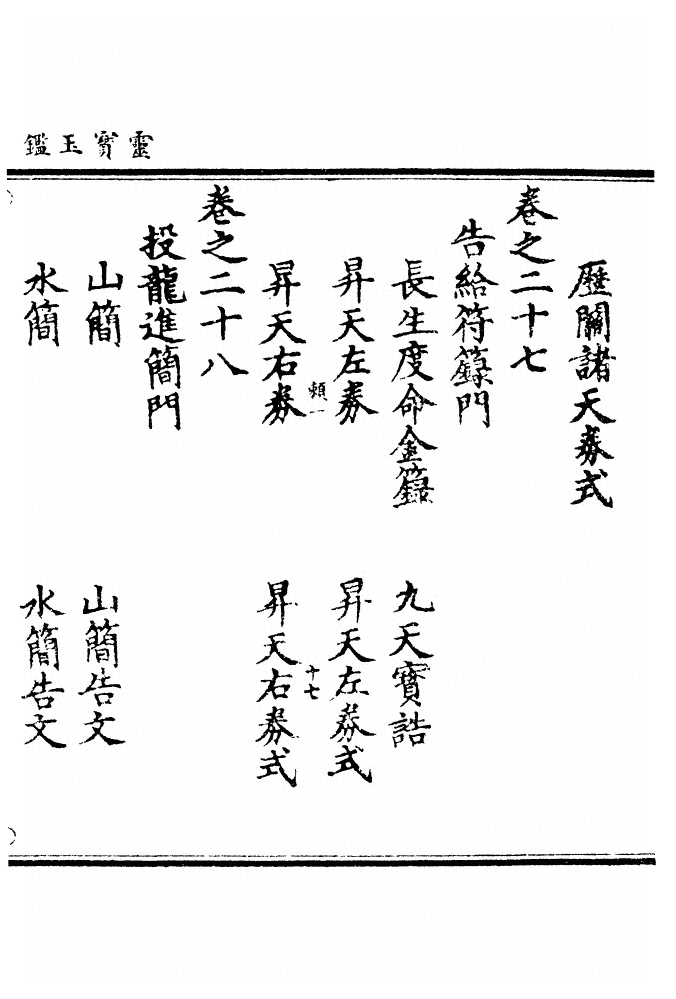 靈寶玉鑑
歷關諸天券式
卷之二十七
告給符籙門
長生度命金籙 九天寶誥
昇天左券 昇天左券式
頼一 十七
昇天右券 昇天右券式
卷之二十八
投龍進簡門
山簡 山簡告文
水簡 水簡告文